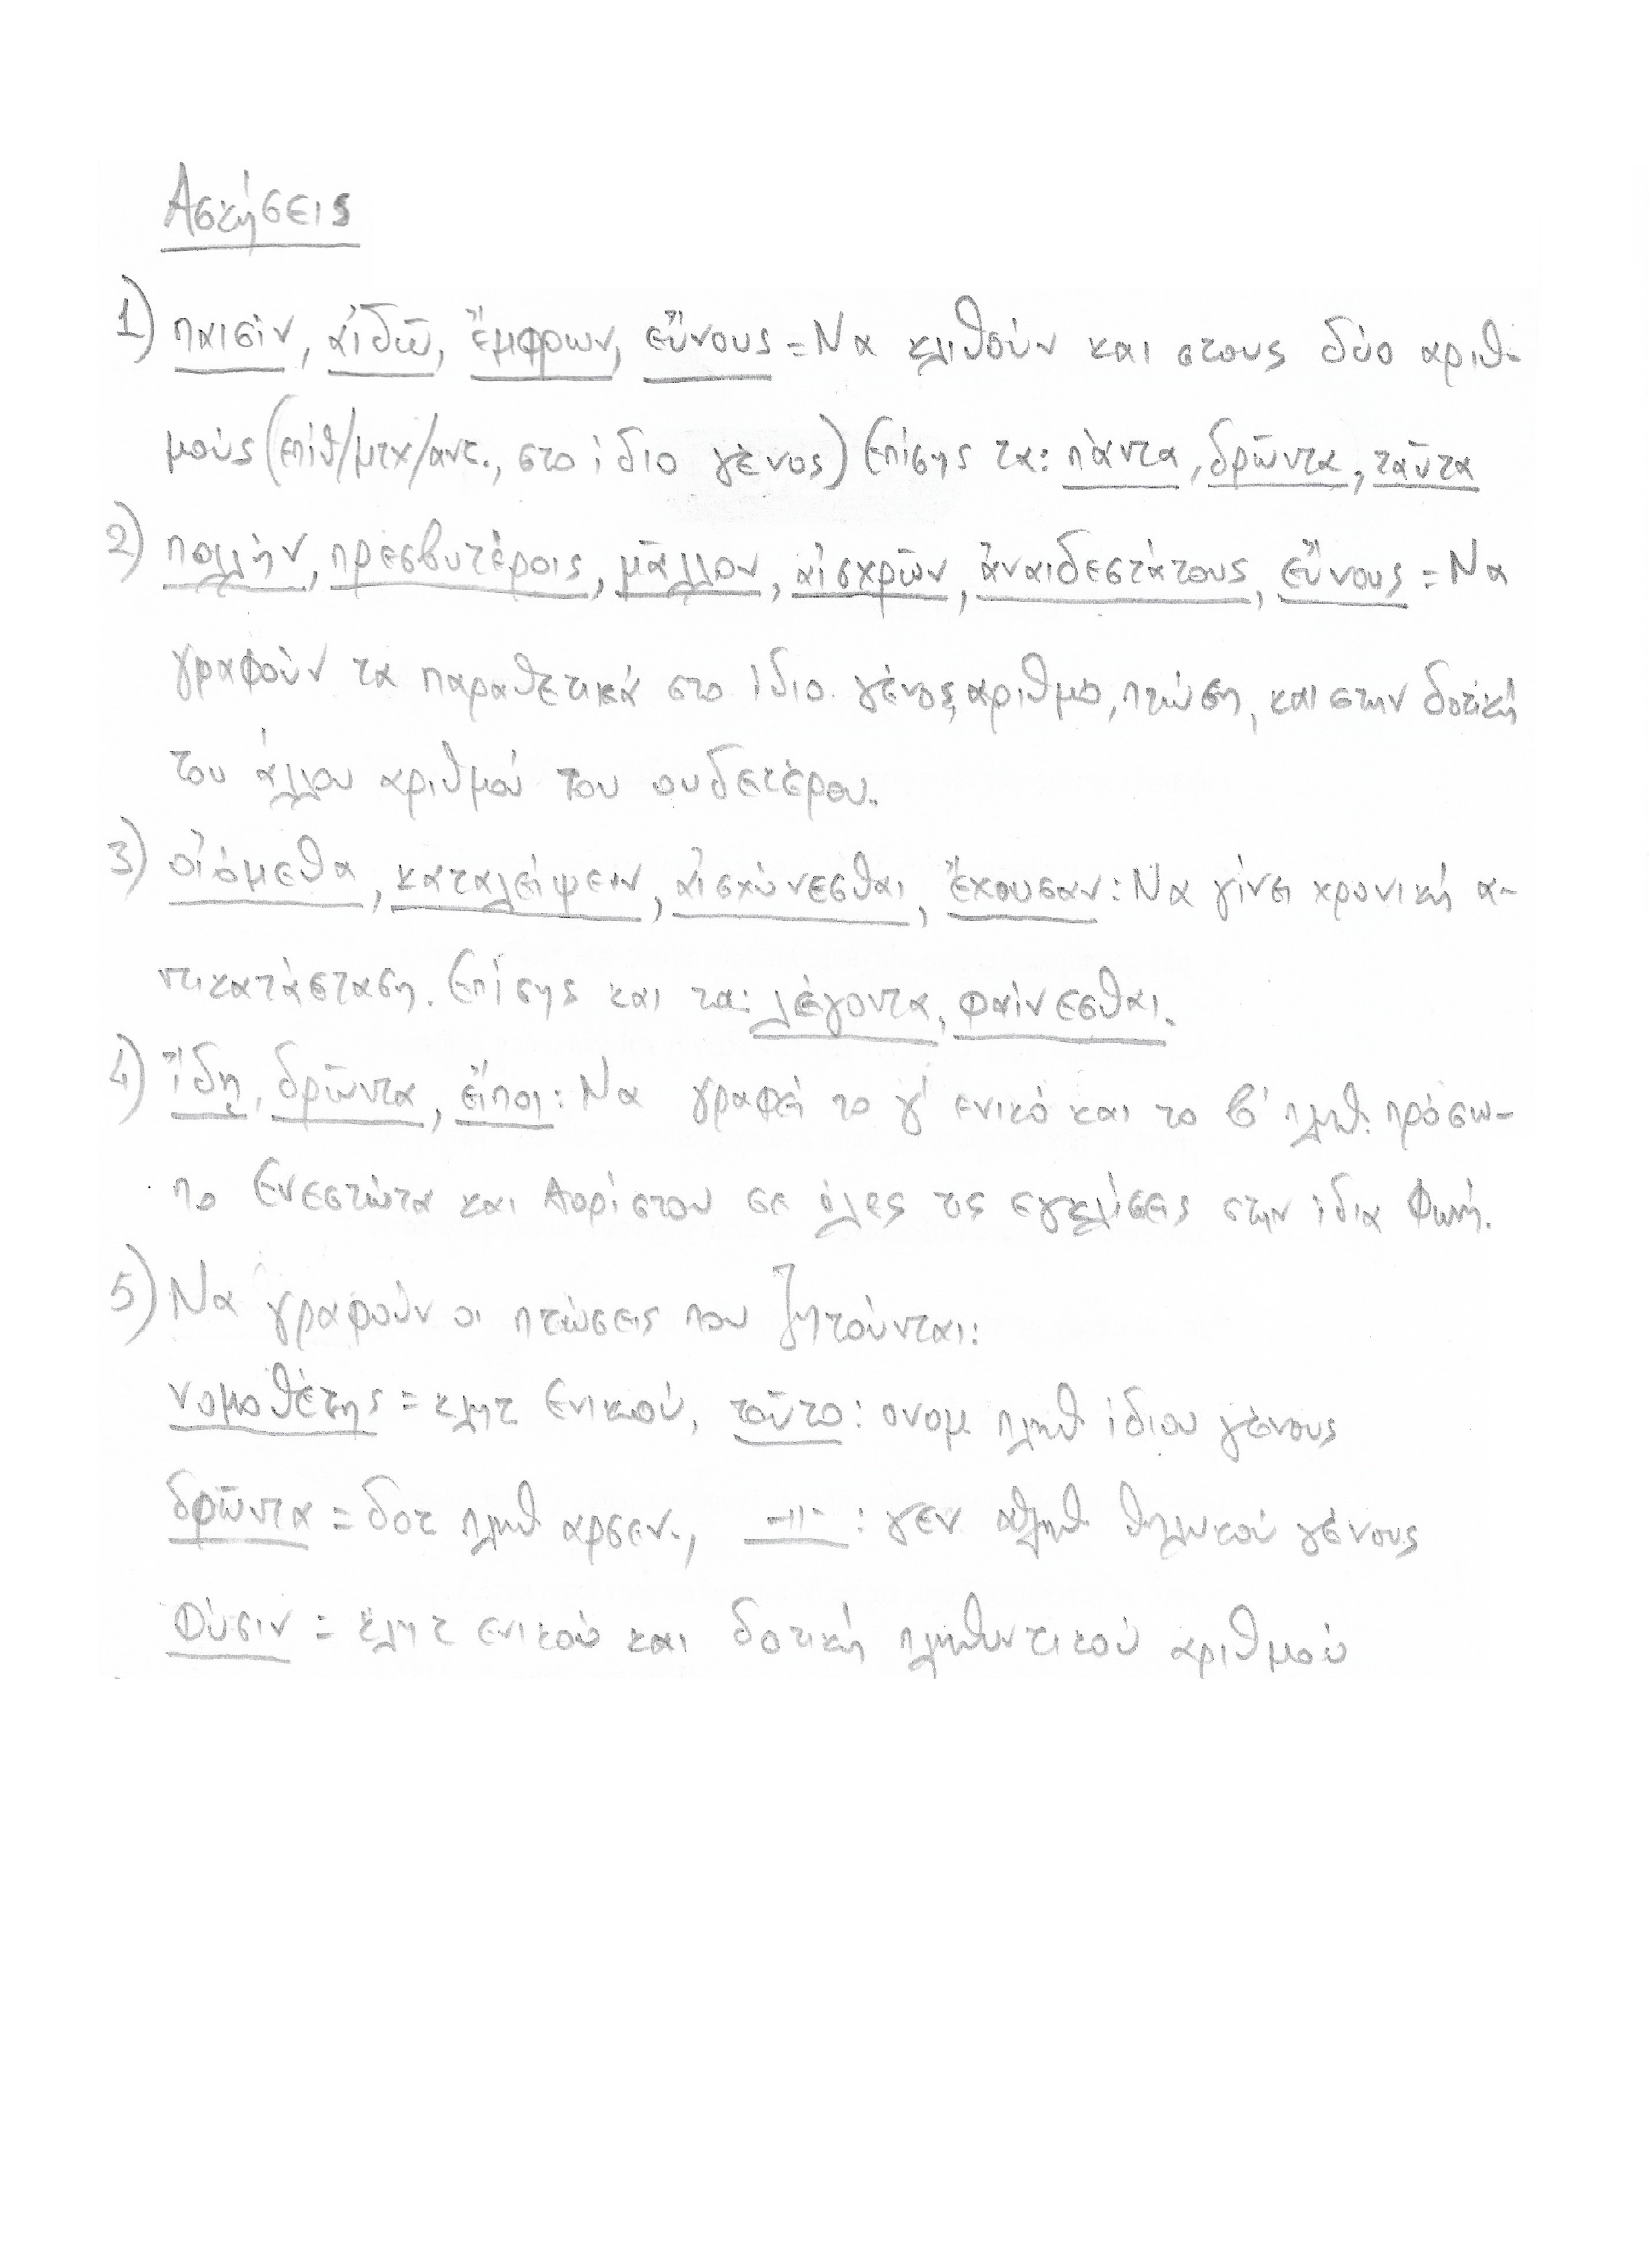 Ασκήσεις
1) παισίν, αἰδῶ, ἔμφρων, εὔνους = Να κλιθούν και στους δύο αριθ-
μούς (επίθ/μτχ/αντ., στο ίδιο γένος) Επίσης τα: πάντα, δρῶντα, ταῦτα
2) πολλήν, πρεσβυτέροις, μᾶλλον, αἰσχρῶν, ἀναιδεστάτους, εὔνους = Να
γραφούν τα παραθετικά στο ίδιο γένος, αριθμό, πτώση, και στην δοτική
του άλλου αριθμού του ουδετέρου.
3) οἰόμεθα, καταλείψειν, αἰσχύνεσθαι, ἔχουσαν: Να γίνει χρονική α-
ντικατάσταση. Επίσης και τα: λέγοντα, φαίνεσθαι.
4) ἴδῃ, δρῶντα, εἴποι: Να γραφεί το γ' ενικό και το β' πληθ. πρόσω-
πο Ενεστώτα και Αορίστου σε όλες τις εγκλίσεις στην ίδια φωνή.
5) Να γραφούν οι πτώσεις που ζητούνται:
νομοθέτης = κλητ Ενικού, τοῦτο: ονομ πληθ ίδιου γένους
δρῶντα = δοτ πληθ αρσεν., -//-: γεν πληθ θηλυκού γένους
φύσιν = κλητ ενικού και δοτική πληθυντικού αριθμού